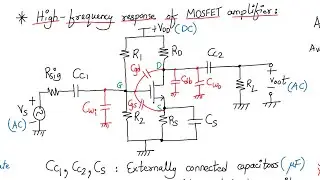 * High-frequency response of MOSFET amplifier:
+VDD (DC)
A
R1
RD
CC2
D
Av
Cgd
Rsig
CC1
G
Cdb
Cwo
RL
Vout
(AC)
VS
(AC)
Cwi
Cgs
S
R2
RS
CS
CC1, CC2, CS : Externally connected capacitors (μF)